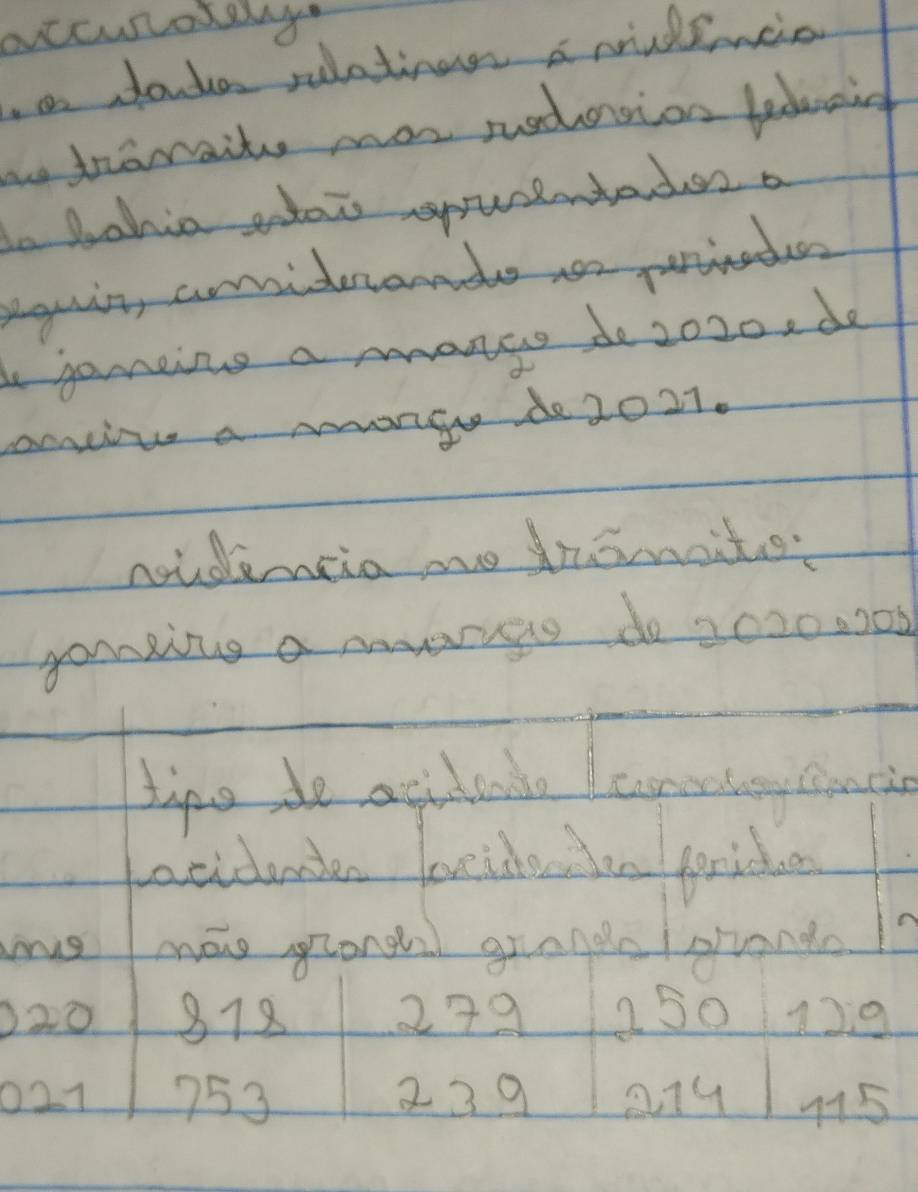 accurately.
1. os dados relativos á viulência
no trâmsito nas rodovias federais
da bahia estão apresentados a
seguir, considerando os períodos
de janeiro a março de 2020 e de
janeiro a março de 2021.
viulência no trâmsito:
janeiro a março de 2020 e 202
tipo de acidente
acidentes acidentes feridos
ano não grandes grandes grandes
020 818 279 250 129
021 753 239 214 115